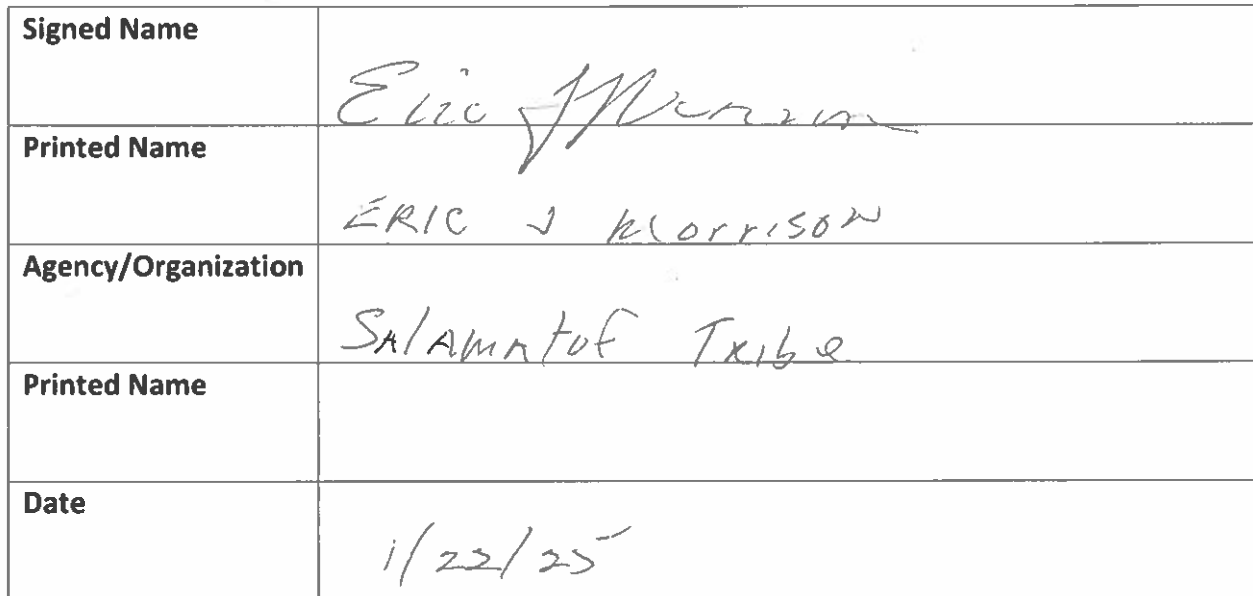 Signed Name
Eric J Morrison
Printed Name
ERIC J Morrison
Agency/Organization
SALAMAtof Tribe
Printed Name
Date
1/22/25